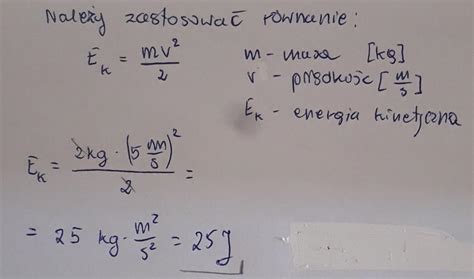 Należy zastosować równanie:
E_k = mv²/2
m - masa [kg]
v - prędkość [m/s]
E_k - energia kinetyczna
E_k = 2kg · (5 m/s)² / 2 =
= 25 kg · m²/s² = 25J